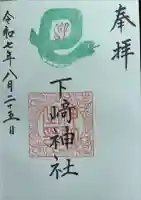 奉拝
下﨑神社
令和七年八月二十五日